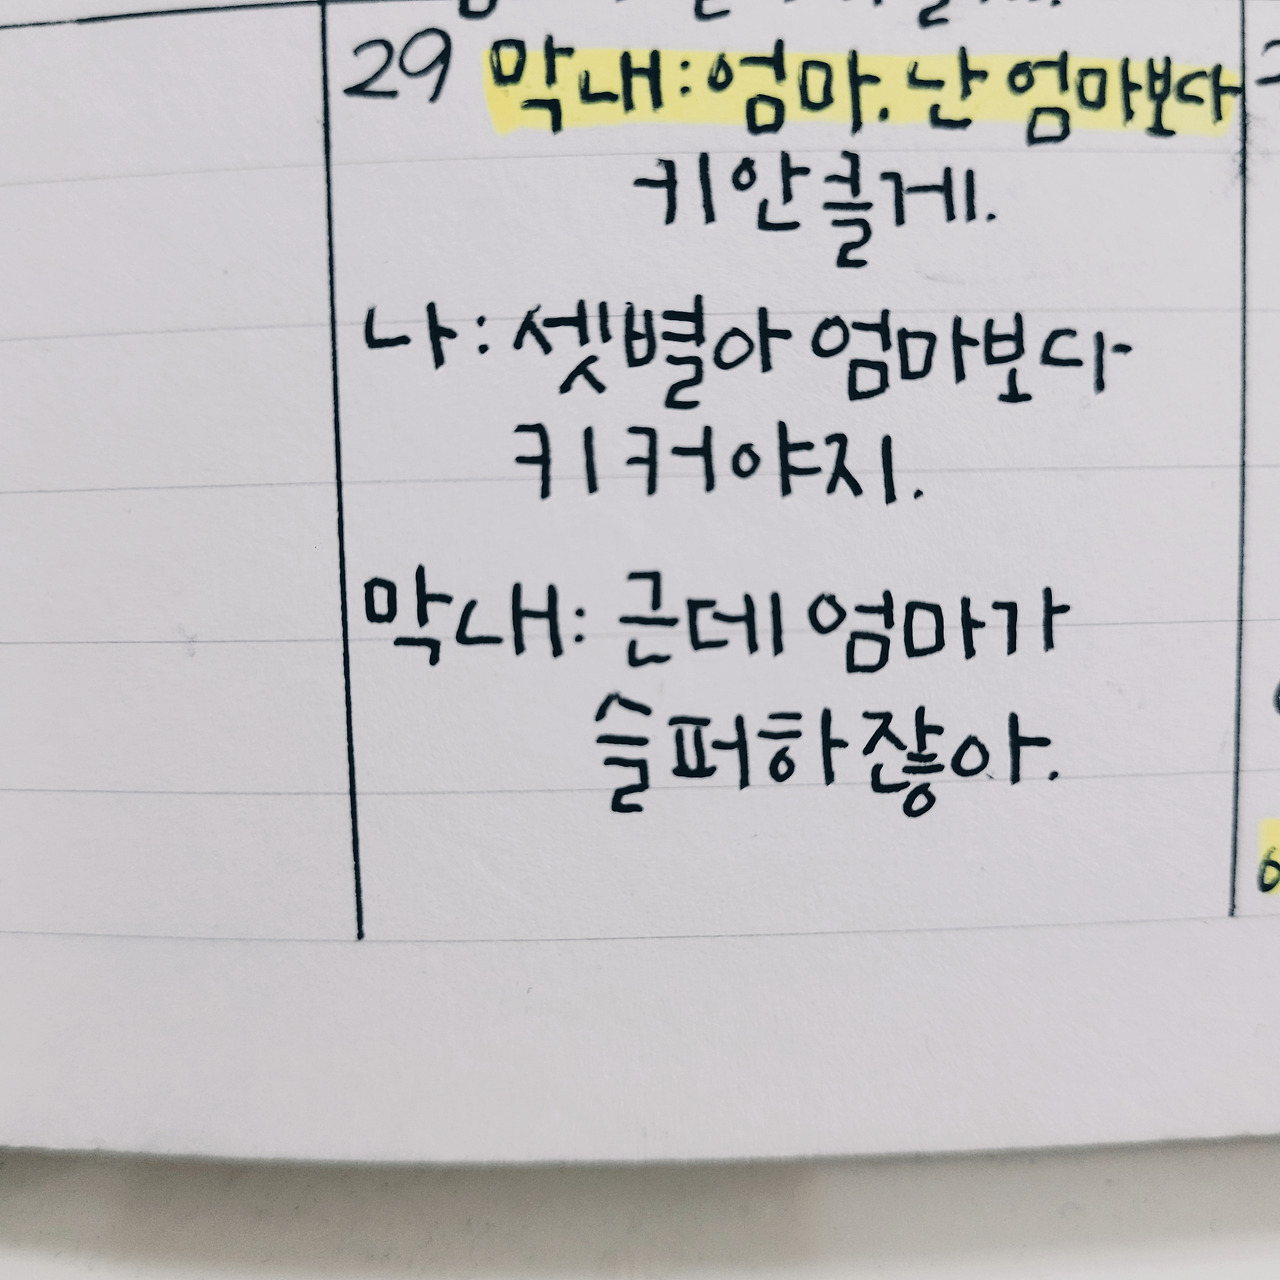 29 막내:엄마. 난 엄마보다
키안클게.
나:셋별아 엄마보다
키 커야지.
막내: 근데 엄마가
슬퍼하잖아.